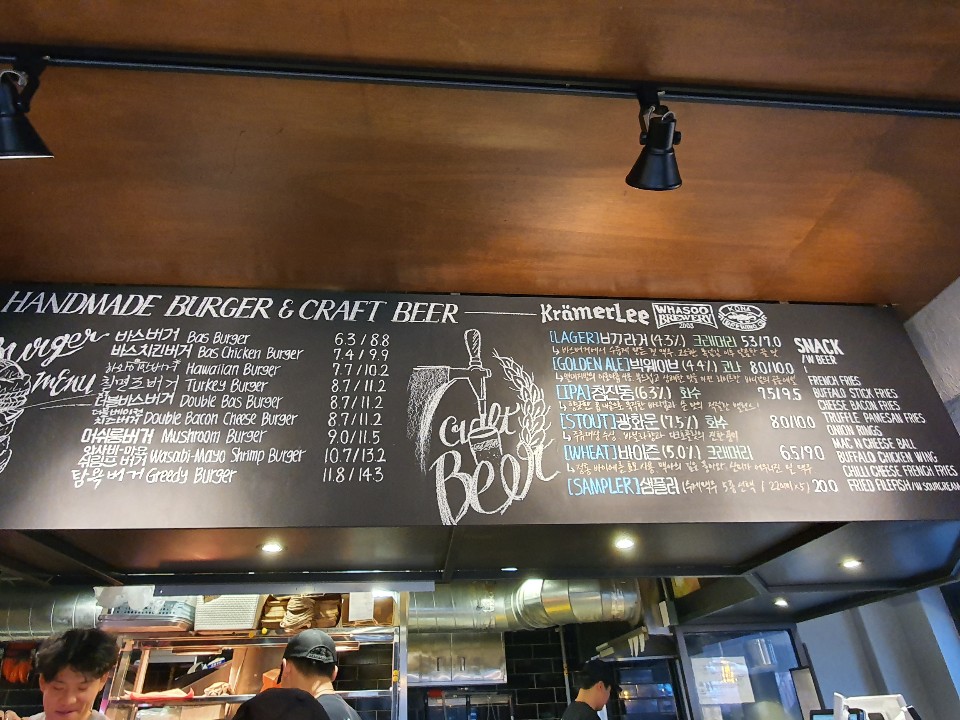 HANDMADE BURGER & CRAFT BEER
Burger
menu
바스버거 Bas Burger 6.3 / 8.8
바스치킨버거 Bas Chicken Burger 7.4 / 9.9
하와이안버거 Hawaiian Burger 7.7 / 10.2
칠면조버거 Turkey Burger 8.7 / 11.2
더블바스버거 Double Bas Burger 8.7 / 11.2
더블베이컨 치즈버거 Double Bacon Cheese Burger 8.7 / 11.2
머쉬룸버거 Mushroom Burger 9.0 / 11.5
와사비-마요 쉬림프 버거 Wasabi-Mayo Shrimp Burger 10.7 / 13.2
탐욕버거 Greedy Burger 11.8 / 14.3
Craft
Beer
KrämerLee WHASOO BREWERY 2003 KONA BREWING CO
[LAGER] 버거라거 (4.3%) 크래머리 5.3 / 7.0
[GOLDEN ALE] 빅웨이브 (4.4%) 코나 8.0 / 10.0
[IPA] 청진동 (6.3%) 화수 7.5 / 9.5
[STOUT] 광화문 (7.5%) 화수 8.0 / 10.0
[WHEAT] 바이젠 (5.0%) 크래머리 6.5 / 9.0
[SAMPLER] 샘플러 20.0
SNACK
/W BEER
FRENCH FRIES
BUFFALO STICK FRIES
CHEESE BACON FRIES
TRUFFLE PARMESAN FRIES
ONION RINGS
MAC N CHEESE BALL
BUFFALO CHICKEN WING
CHILLI CHEESE FRENCH FRIES
FRIED FILEFISH /W SOUR CREAM